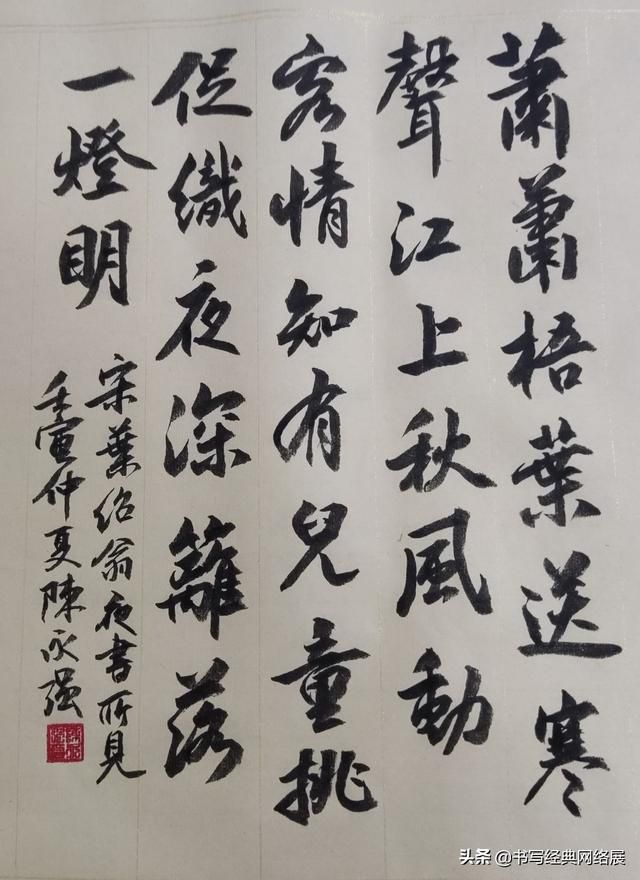 蕭蕭梧葉送寒
聲江上秋風動
客情知有兒童挑
促織夜深籬落
一燈明
宋葉绍翁夜書所見
壬寅仲夏陳永强
头条 @书写经典网络展